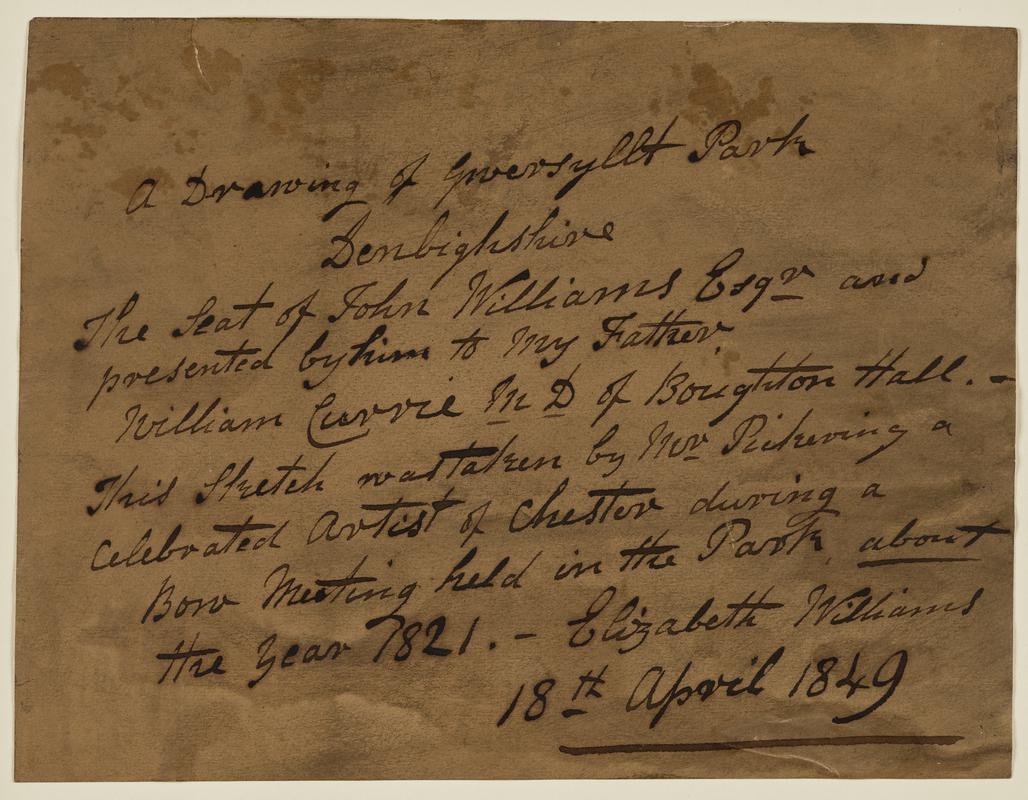 A Drawing of Gwersyllt Park
Denbighshire
The Seat of John Williams Esqr and
presented by him to My Father,
William Currie M D of Boughton Hall. -
This Sketch was taken by Mr Pickering a
Celebrated Artist of Chester during a
Bow Meeting held in the Park, about
the Year 1821. - Elizabeth Williams
18th April 1849